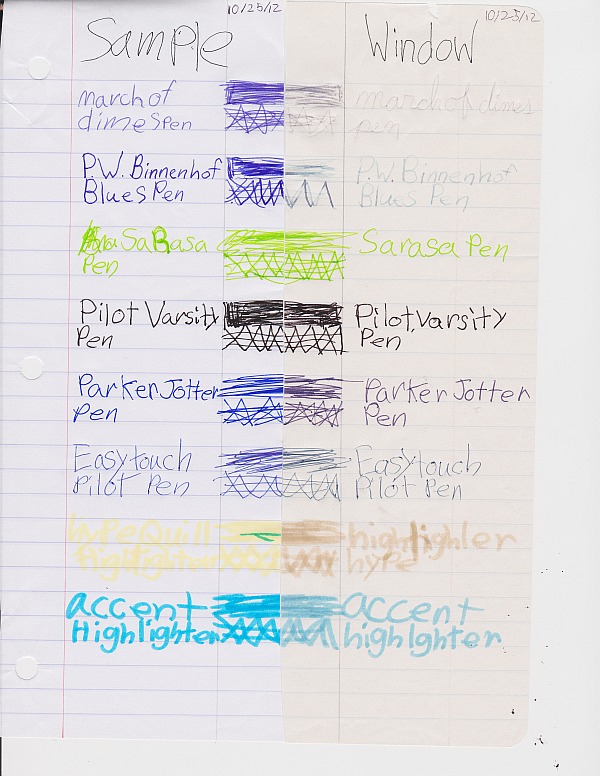 10/25/12
Sample
march of
dimes Pen
P.W. Binnenhof
Blues Pen
SaRasa
Pen
Pilot Varsity
Pen
Parker Jotter
Pen
Easytouch
Pilot Pen
hype Quill
Highlighter
accent
Highlighter
10/25/12
Window
march of dimes
pen
P.W. Binnenhof
Blues Pen
Sarasa Pen
Pilot varsity
Pen
Parker Jotter
Pen
Easytouch
Pilot Pen
highlighler
hype
accent
highlghter